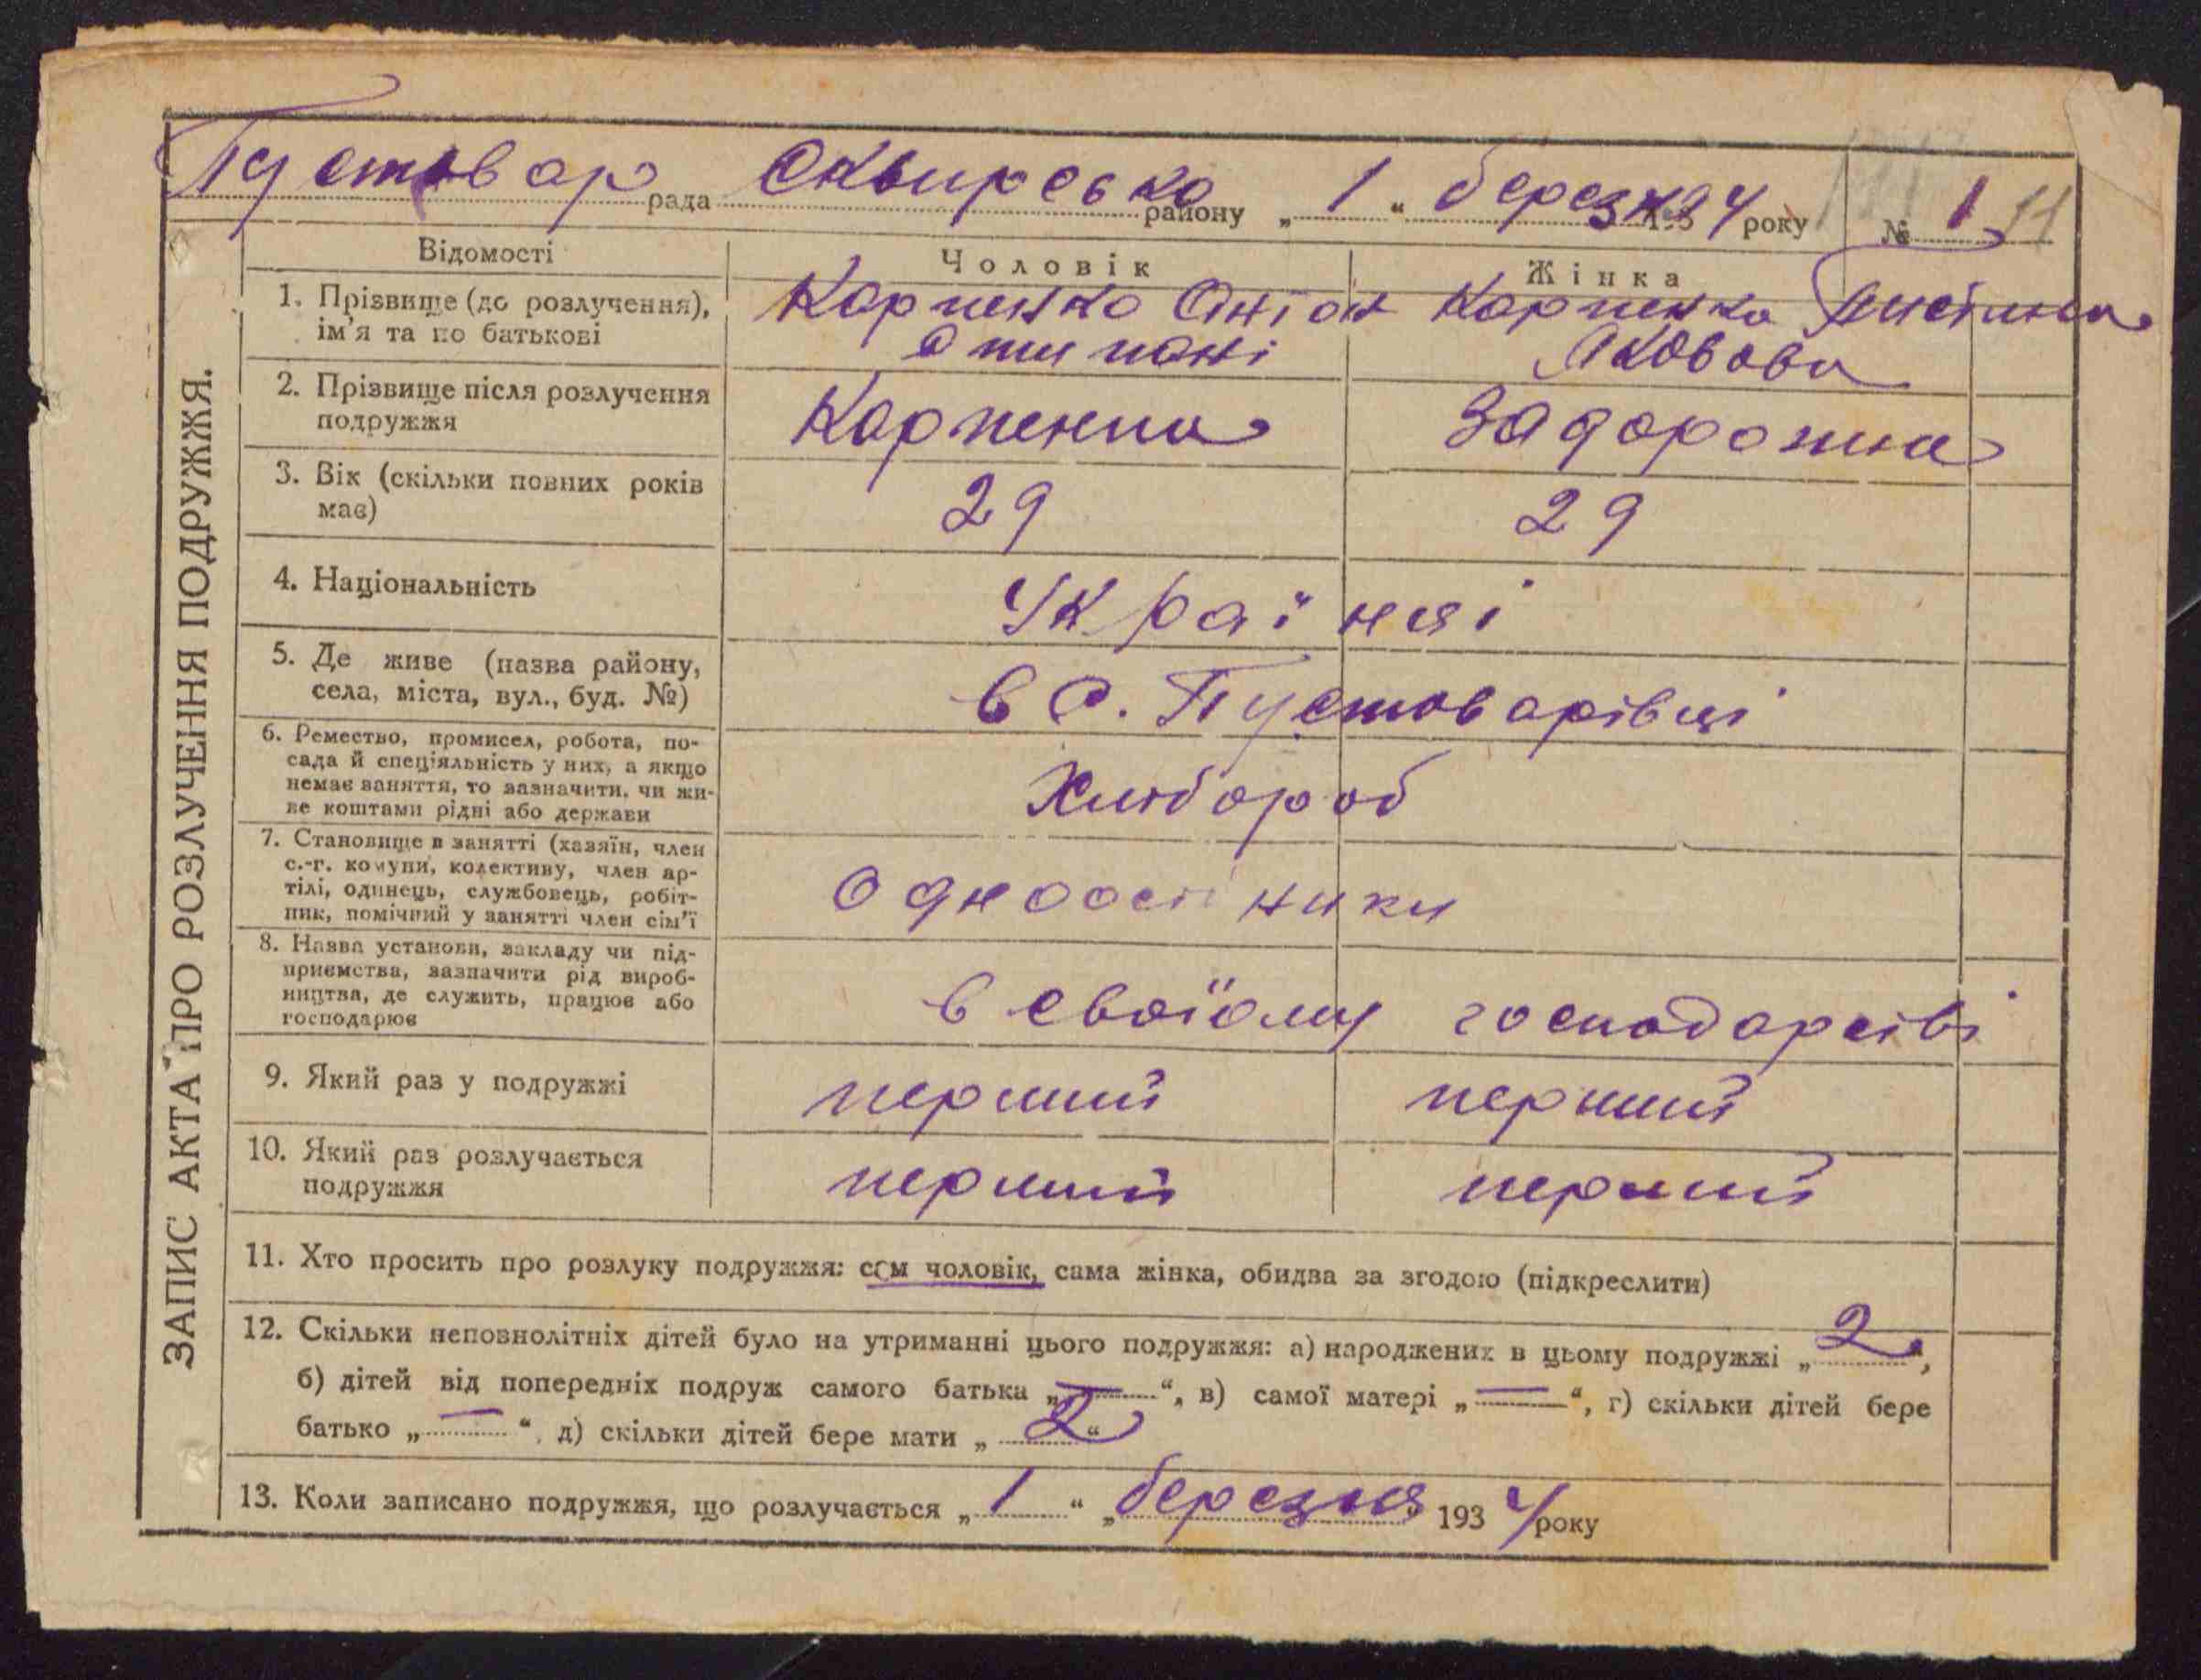 ЗАПИС АКТА ПРО РОЗЛУЧЕННЯ ПОДРУЖЖЯ.
Пустовар рада Сквирсько району „ 1 “ березня 1934 року № 1 11
Відомості Чоловік Жінка
1. Прізвище (до розлучення), ім'я та по батькові
Карпенко Антон Карпенко
Яковова
2. Прізвище після розлучення подружжя
Карпенко Задорожна
3. Вік (скільки повних років має)
29 29
4. Національність
Україняі
5. Де живе (назва району, села, міста, вул., буд. №)
в с. Пустоварівці
6. Ремество, промисел, робота, по-
сада й спеціяльність у них, а якщо
немає заняття, то зазначити, чи жи-
ве коштами рідні або держави
Хлібороб
7. Становище в занятті (хазяїн, член
с.-г. комуни, колективу, член ар-
тілі, одинець, службовець, робіт-
ник, помічний у занятті член сім'ї
Одноосіники
8. Назва установи, закладу чи під-
приємства, зазначити рід вироб-
ництва, де служить, працює або
господарює
в своїому господарстві
9. Який раз у подружжі
перший перший
10. Який раз розлучається подружжя
перший перший
11. Хто просить про розлуку подружжя: сам чоловік, сама жінка, обидва за згодою (підкреслити)
12. Скільки неповнолітніх дітей було на утриманні цього подружжя: а) народжених в цьому подружжі „ 2 “,
б) дітей від попередніх подруж самого батька „ — “, в) самої матері „ — “, г) скільки дітей бере
батько „ — “, д) скільки дітей бере мати „ 2 “
13. Коли записано подружжя, що розлучається „ 1 “ „ березня “ 1934 року